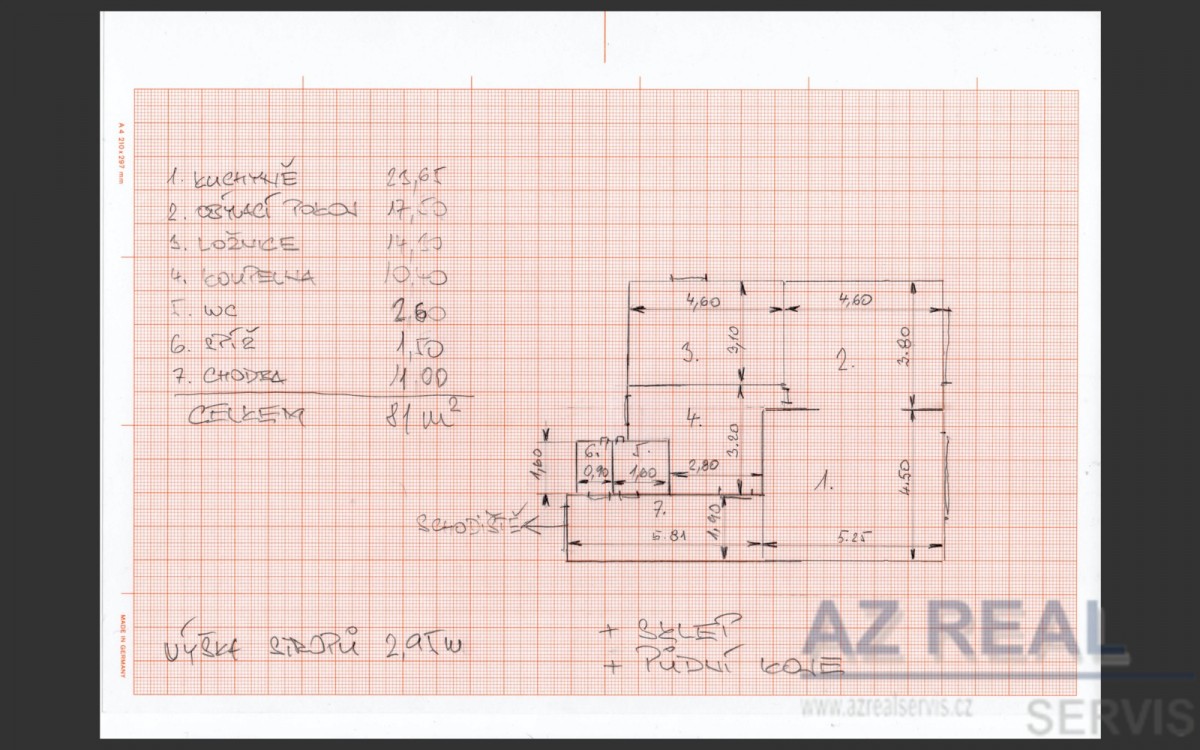 A4 210 x 297 mm
1. KUCHYNĚ 23,65
2. OBÝVACÍ POKOJ 17,50
3. LOŽNICE 14,30
4. KOUPELNA 10,40
5. WC 2,60
6. SPÍŽ 1,50
7. CHODBA 11.00
CELKEM 81 m²
4,60
4,60
3,10
3.80
3.
2.
4.
3.20
6.
5.
1,60
0,90
1,60
2,80
1.
4.50
7.
SCHODIŠTĚ
5.81
1,90
5.25
MADE IN GERMANY
VÝŠKA STROPŮ 2,95m
+ SKLEP
+ PŮDNÍ KOJE
AZ REAL
SERVIS
www.azrealservis.cz